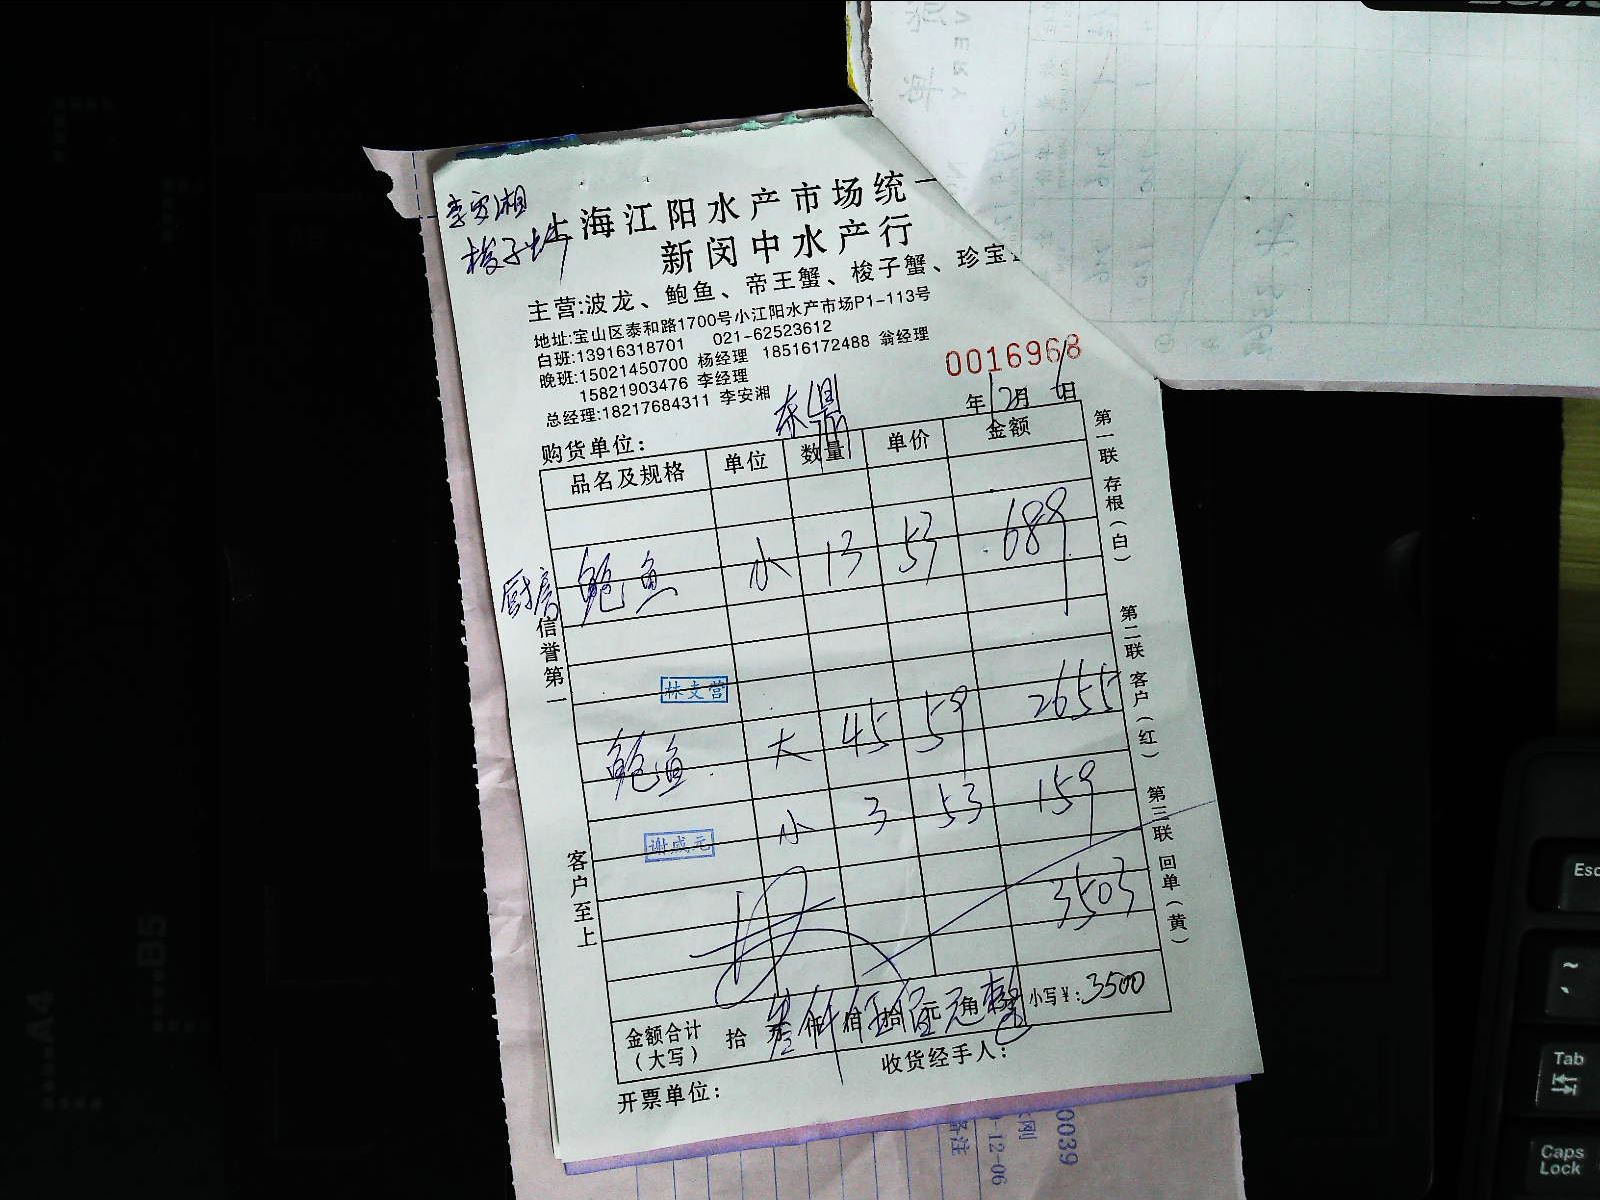 李安湘
梭子蟹
上海江阳水产市场统一
新闵中水产行
主营:波龙、鲍鱼、帝王蟹、梭子蟹、珍宝
地址:宝山区泰和路1700号小江阳水产市场P1-113号
白班:13916318701 021-62523612
晚班:15021450700 杨经理 18516172488 翁经理
15821903476 李经理
总经理:18217684311 李安湘
0016968
购货单位: 东鼎 年12月6日
品名及规格 单位 数量 单价 金额
厨房 鲍鱼 小 13 53 689
林支营
鲍鱼 大 45 59 2655
小 3 53 159
谢成元
3503
金额合计(大写) 拾 万 仟 佰 拾 元 角 小写¥:3500
叁仟伍佰元整
收货经手人:
开票单位:
信誉第一
客户至上
第一联 存根(白)
第二联 客户(红)
第三联 回单(黄)
0039
-12-06
备注
A4
B5
Esc
~
Tab
Caps Lock